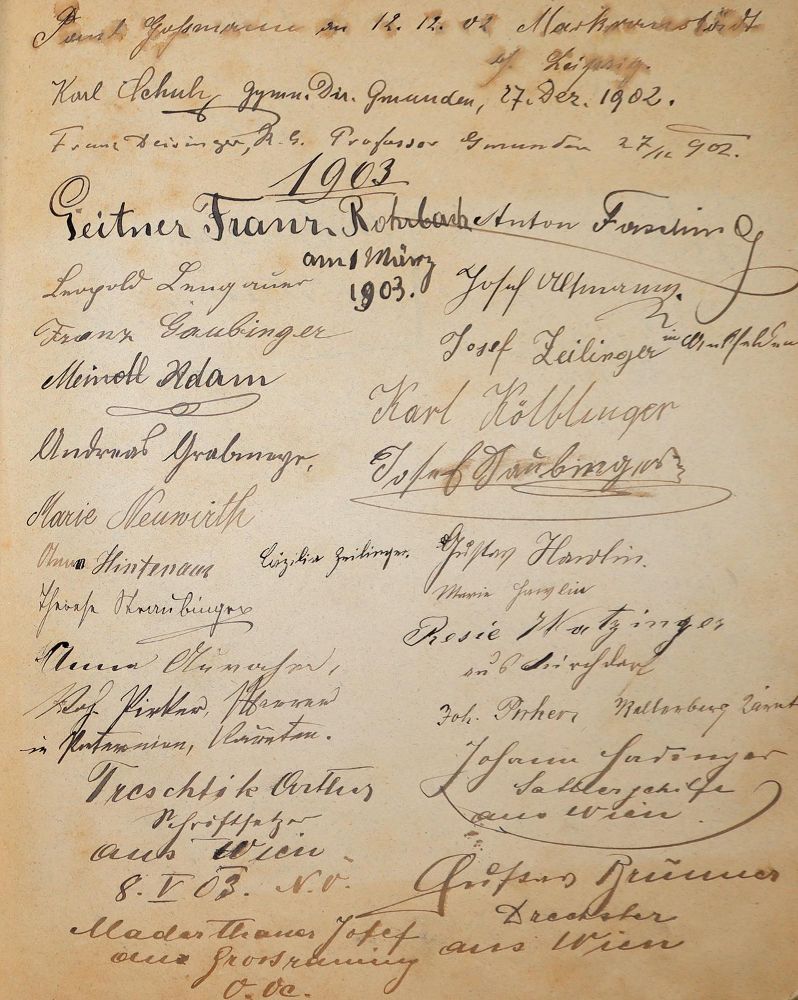 Paul Goßmann an 12.12.02 Markranstädt
b/ Leipzig.
Karl Schuh, Gymn. Dir. Gmunden, 27. Dez. 1902.
Franz Deisinger, K. G. Professor Gmunden 27/12 902.
1903
Geitner Franz, Rohrbach
am 1 März
1903.
Anton Fasching
Leopold Lengauer
Josef Altmann.
Franz Gaubinger
Josef Zeilinger in
Meindl Adam
Karl Kölblinger
Andreas Grabmayr,
Josef Daubinger
Marie Neuwirth
Gustav Hawlin.
Anna Hintenaus
Cäzilia Zeilinger.
Marie Hawlin
Therese Straubinger
Resie Watzinger
aus Kirchdorf
Anna Auracher,
Pirker, Pfarrer
in Paternion, Kärnten.
Joh. Pirker, Kärnt
Johann Hadinger
Sattlergehilfe
aus Wien
Treschtik Arthur
Schriftsetzer
aus Wien
8. V 03. N.Ö.
Gustav Brunner
Drechsler
aus Wien
Maderthaner Josef
aus Grossraming
O. Oe.